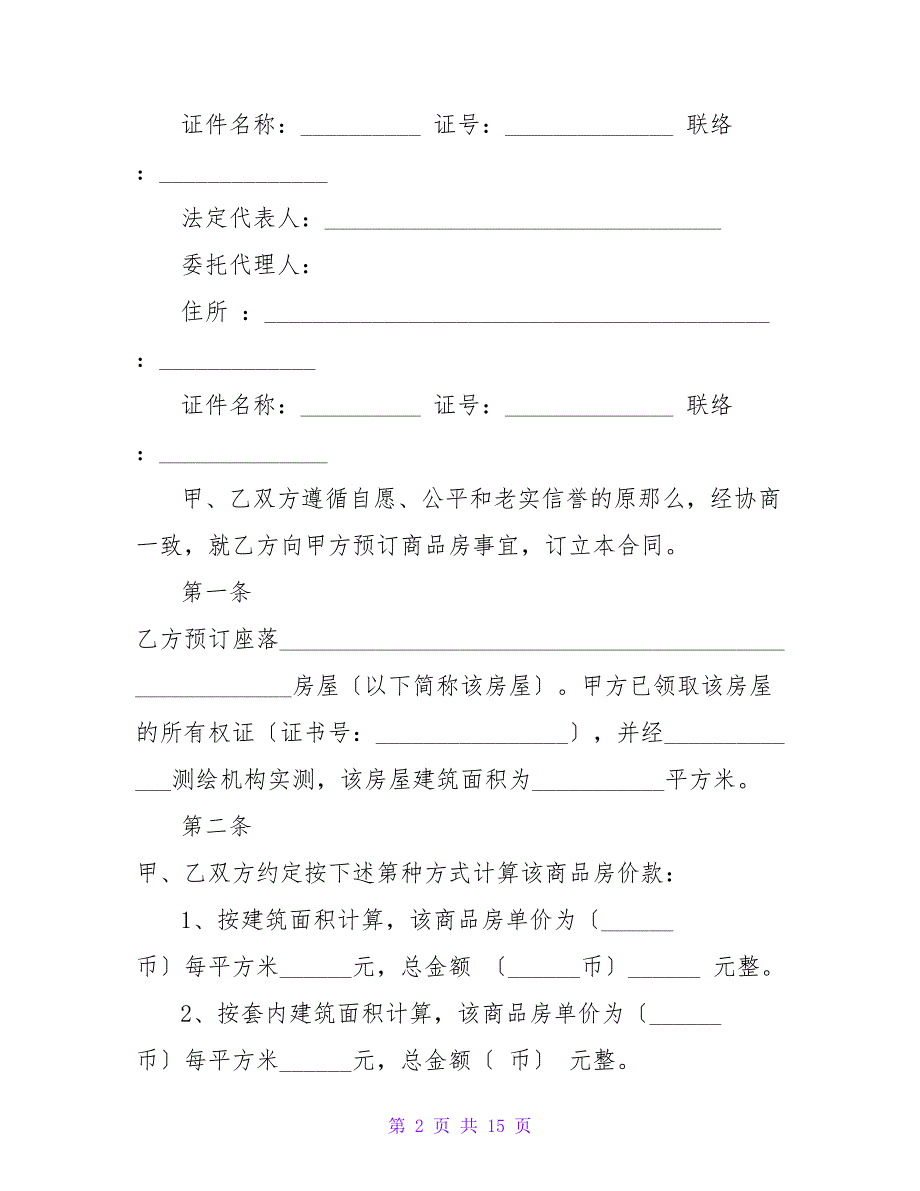 证件名称：__________ 证号：______________ 联络
：______________
法定代表人：_________________________________
委托代理人：
住所 ：__________________________________________
：_____________
证件名称：__________ 证号：______________ 联络
：______________
甲、乙双方遵循自愿、公平和老实信誉的原那么，经协商
一致，就乙方向甲方预订商品房事宜，订立本合同。
第一条
乙方预订座落__________________________________________
_____________房屋〔以下简称该房屋〕。甲方已领取该房屋
的所有权证〔证书号：________________〕，并经__________
___测绘机构实测，该房屋建筑面积为___________平方米。
第二条
甲、乙双方约定按下述第种方式计算该商品房价款：
1、按建筑面积计算，该商品房单价为〔______
币〕每平方米______元，总金额 〔______币〕______ 元整。
2、按套内建筑面积计算，该商品房单价为〔______
币〕每平方米______元，总金额〔 币〕 元整。
第 2 页 共 15 页